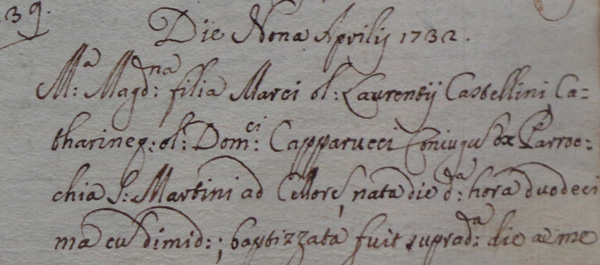 39.
Die Nona Aprilij 1732.
M:ª Magd:na filia Marci ol: Laurentij Castellini, Ca=
tharineq: ol: Dom:ci Capparucci Coniugu ex Parroe=
chia S: Martini ad Cellore, nata die d:ª hora duodeci
ma cu dimid:; baptizzata fuit suprad:ª die a me